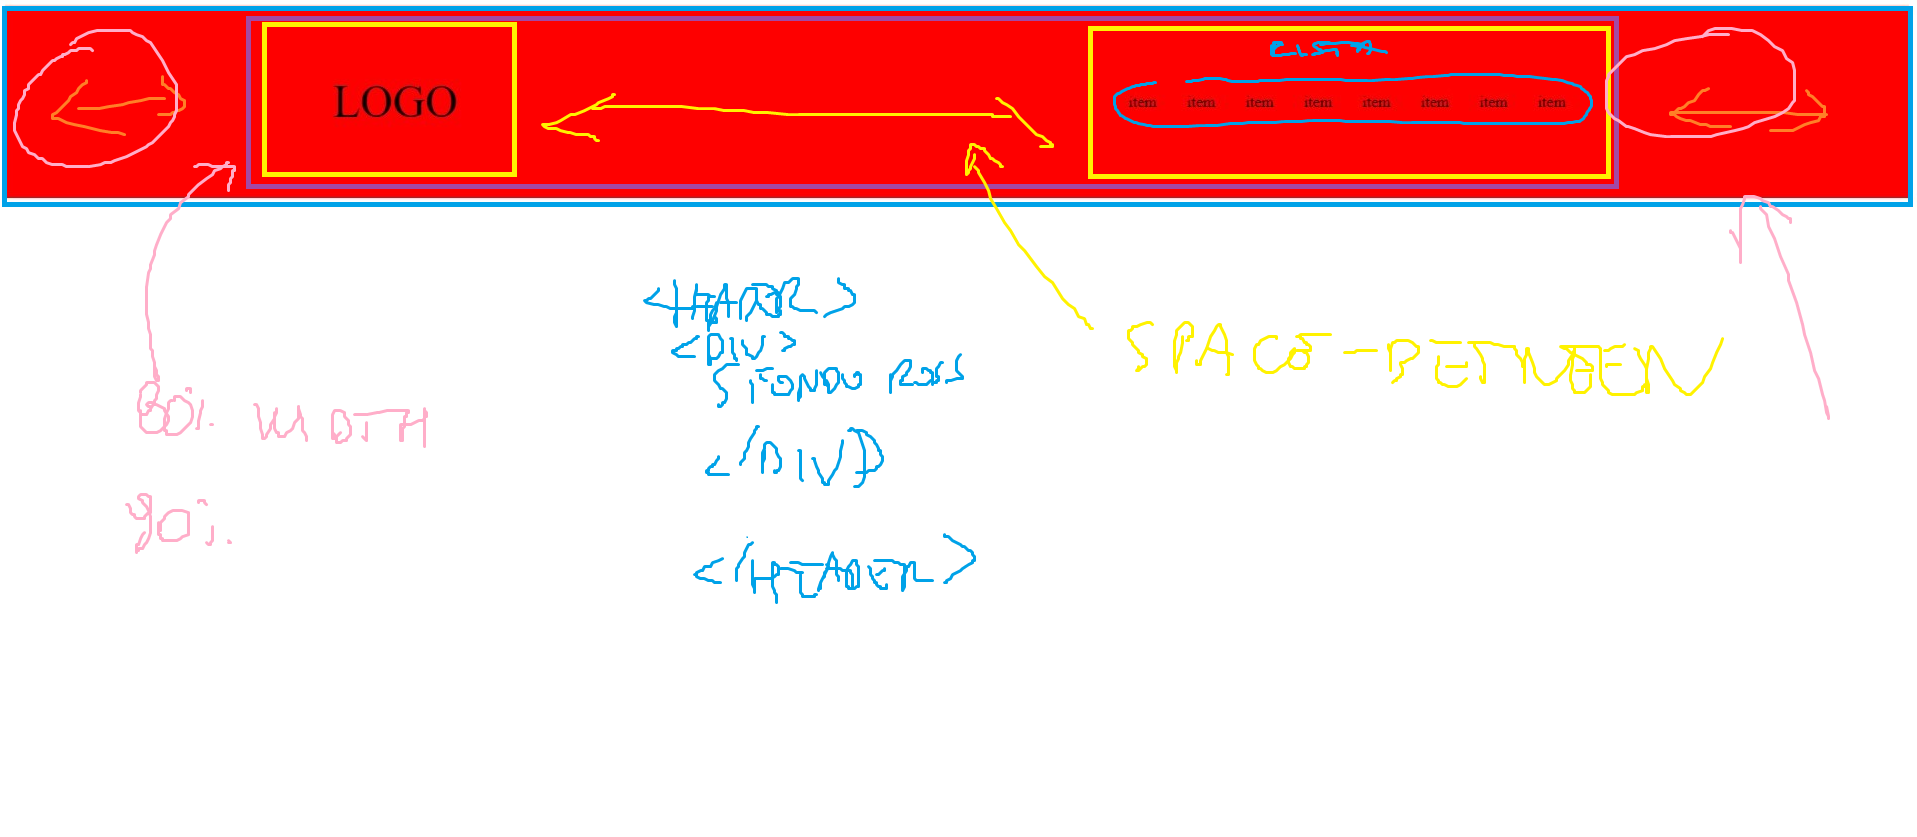 LISTA
LOGO
item item item item item item item item
<HEADER>
<DIV>
SFONDO ROSS
</DIV>
</HEADER>
SPACE-BETWEEN
80% WIDTH
90%.